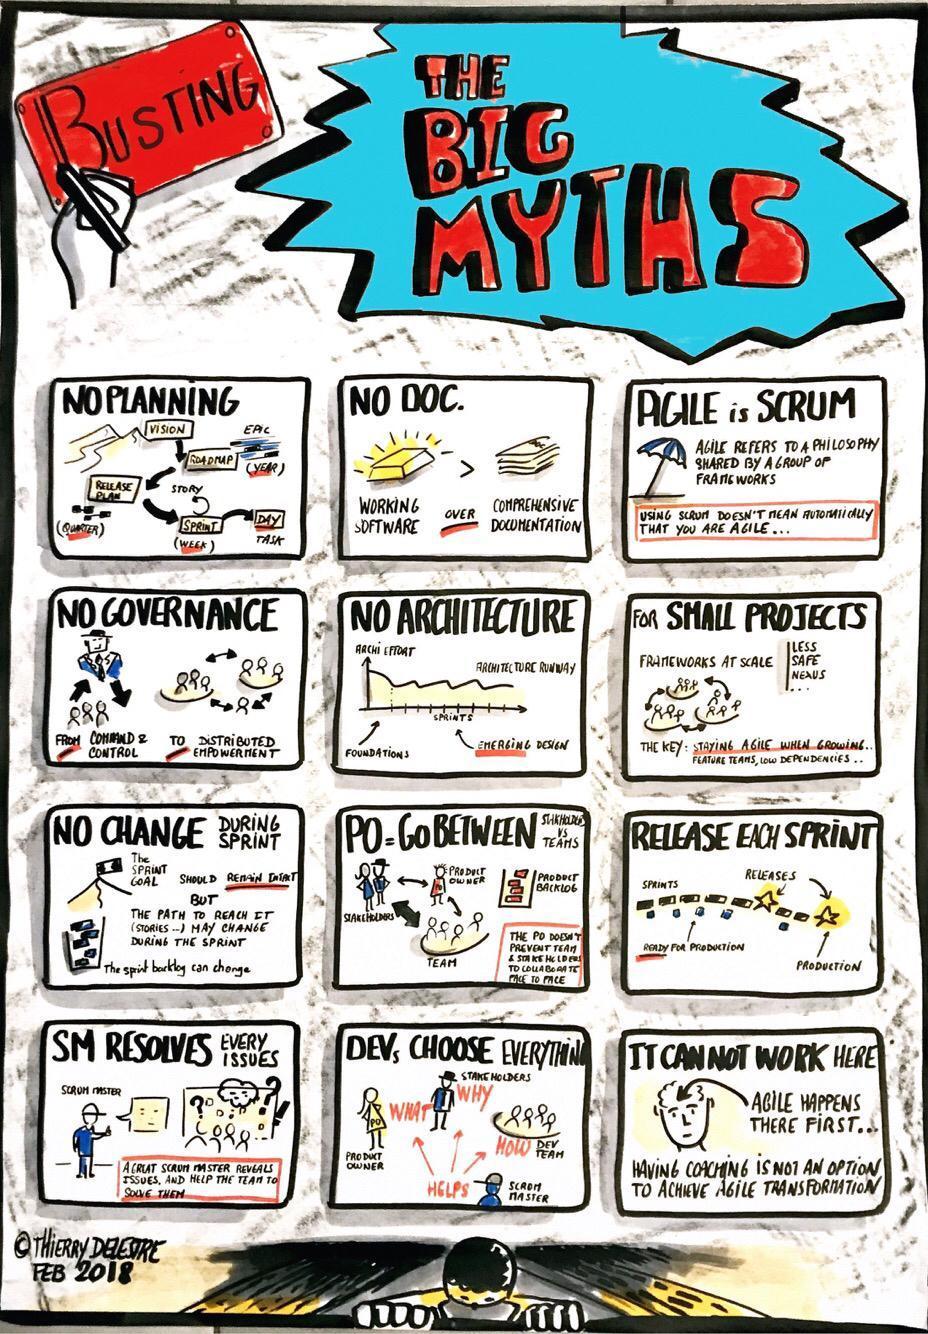 BUSTING
THE
BIG
MYTHS
NO PLANNING
VISION
EPIC
ROADMAP
(YEAR)
RELEASE
PLAN
STORY
(QUARTER)
SPRINT
(WEEK)
DAY
TASK
NO DOC.
DOC
>
WORKING
SOFTWARE
OVER
COMPREHENSIVE
DOCUMENTATION
AGILE is SCRUM
AGILE REFERS TO A PHILOSOPHY
SHARED BY A GROUP OF
FRAMEWORKS
USING SCRUM DOESN'T MEAN AUTOMATICALLY
THAT YOU ARE AGILE...
NO GOVERNANCE
FROM COMMAND &
CONTROL
TO DISTRIBUTED
EMPOWERMENT
NO ARCHITECTURE
ARCHI EFFORT
ARCHITECTURE RUNWAY
SPRINTS
FOUNDATIONS
EMERGING DESIGN
FOR SMALL PROJECTS
FRAMEWORKS AT SCALE
LESS
SAFE
NEXUS
...
THE KEY: STAYING AGILE WHEN GROWING..
FEATURE TEAMS, LOW DEPENDENCIES..
NO CHANGE DURING
SPRINT
The
SPRINT
GOAL
SHOULD REMAIN INTACT
BUT
THE PATH TO REACH IT
(STORIES...) MAY CHANGE
DURING THE SPRINT
The sprint backlog can change
PO = GO BETWEEN STAKEHOLDERS
VS
TEAMS
PRODUCT
OWNER
PRODUCT
BACKLOG
STAKEHOLDERS
TEAM
THE PO DOESN'T
PREVENT TEAM
& STAKEHOLDERS
TO COLLABORATE
FACE TO FACE
RELEASE EACH SPRINT
SPRINTS
RELEASES
READY FOR PRODUCTION
PRODUCTION
SM RESOLVES EVERY
ISSUES
SCRUM MASTER
A GREAT SCRUM MASTER REVEALS
ISSUES, AND HELP THE TEAM TO
SOLVE THEM
DEVs CHOOSE EVERYTHING
STAKEHOLDERS
WHY
WHAT
PO
PRODUCT
OWNER
HOW
DEV
TEAM
HELPS
SCRUM
MASTER
IT CAN NOT WORK HERE
AGILE HAPPENS
THERE FIRST...
HAVING COACHING IS NOT AN OPTION
TO ACHIEVE AGILE TRANSFORMATION
© THIERRY DELESTRE
FEB 2018